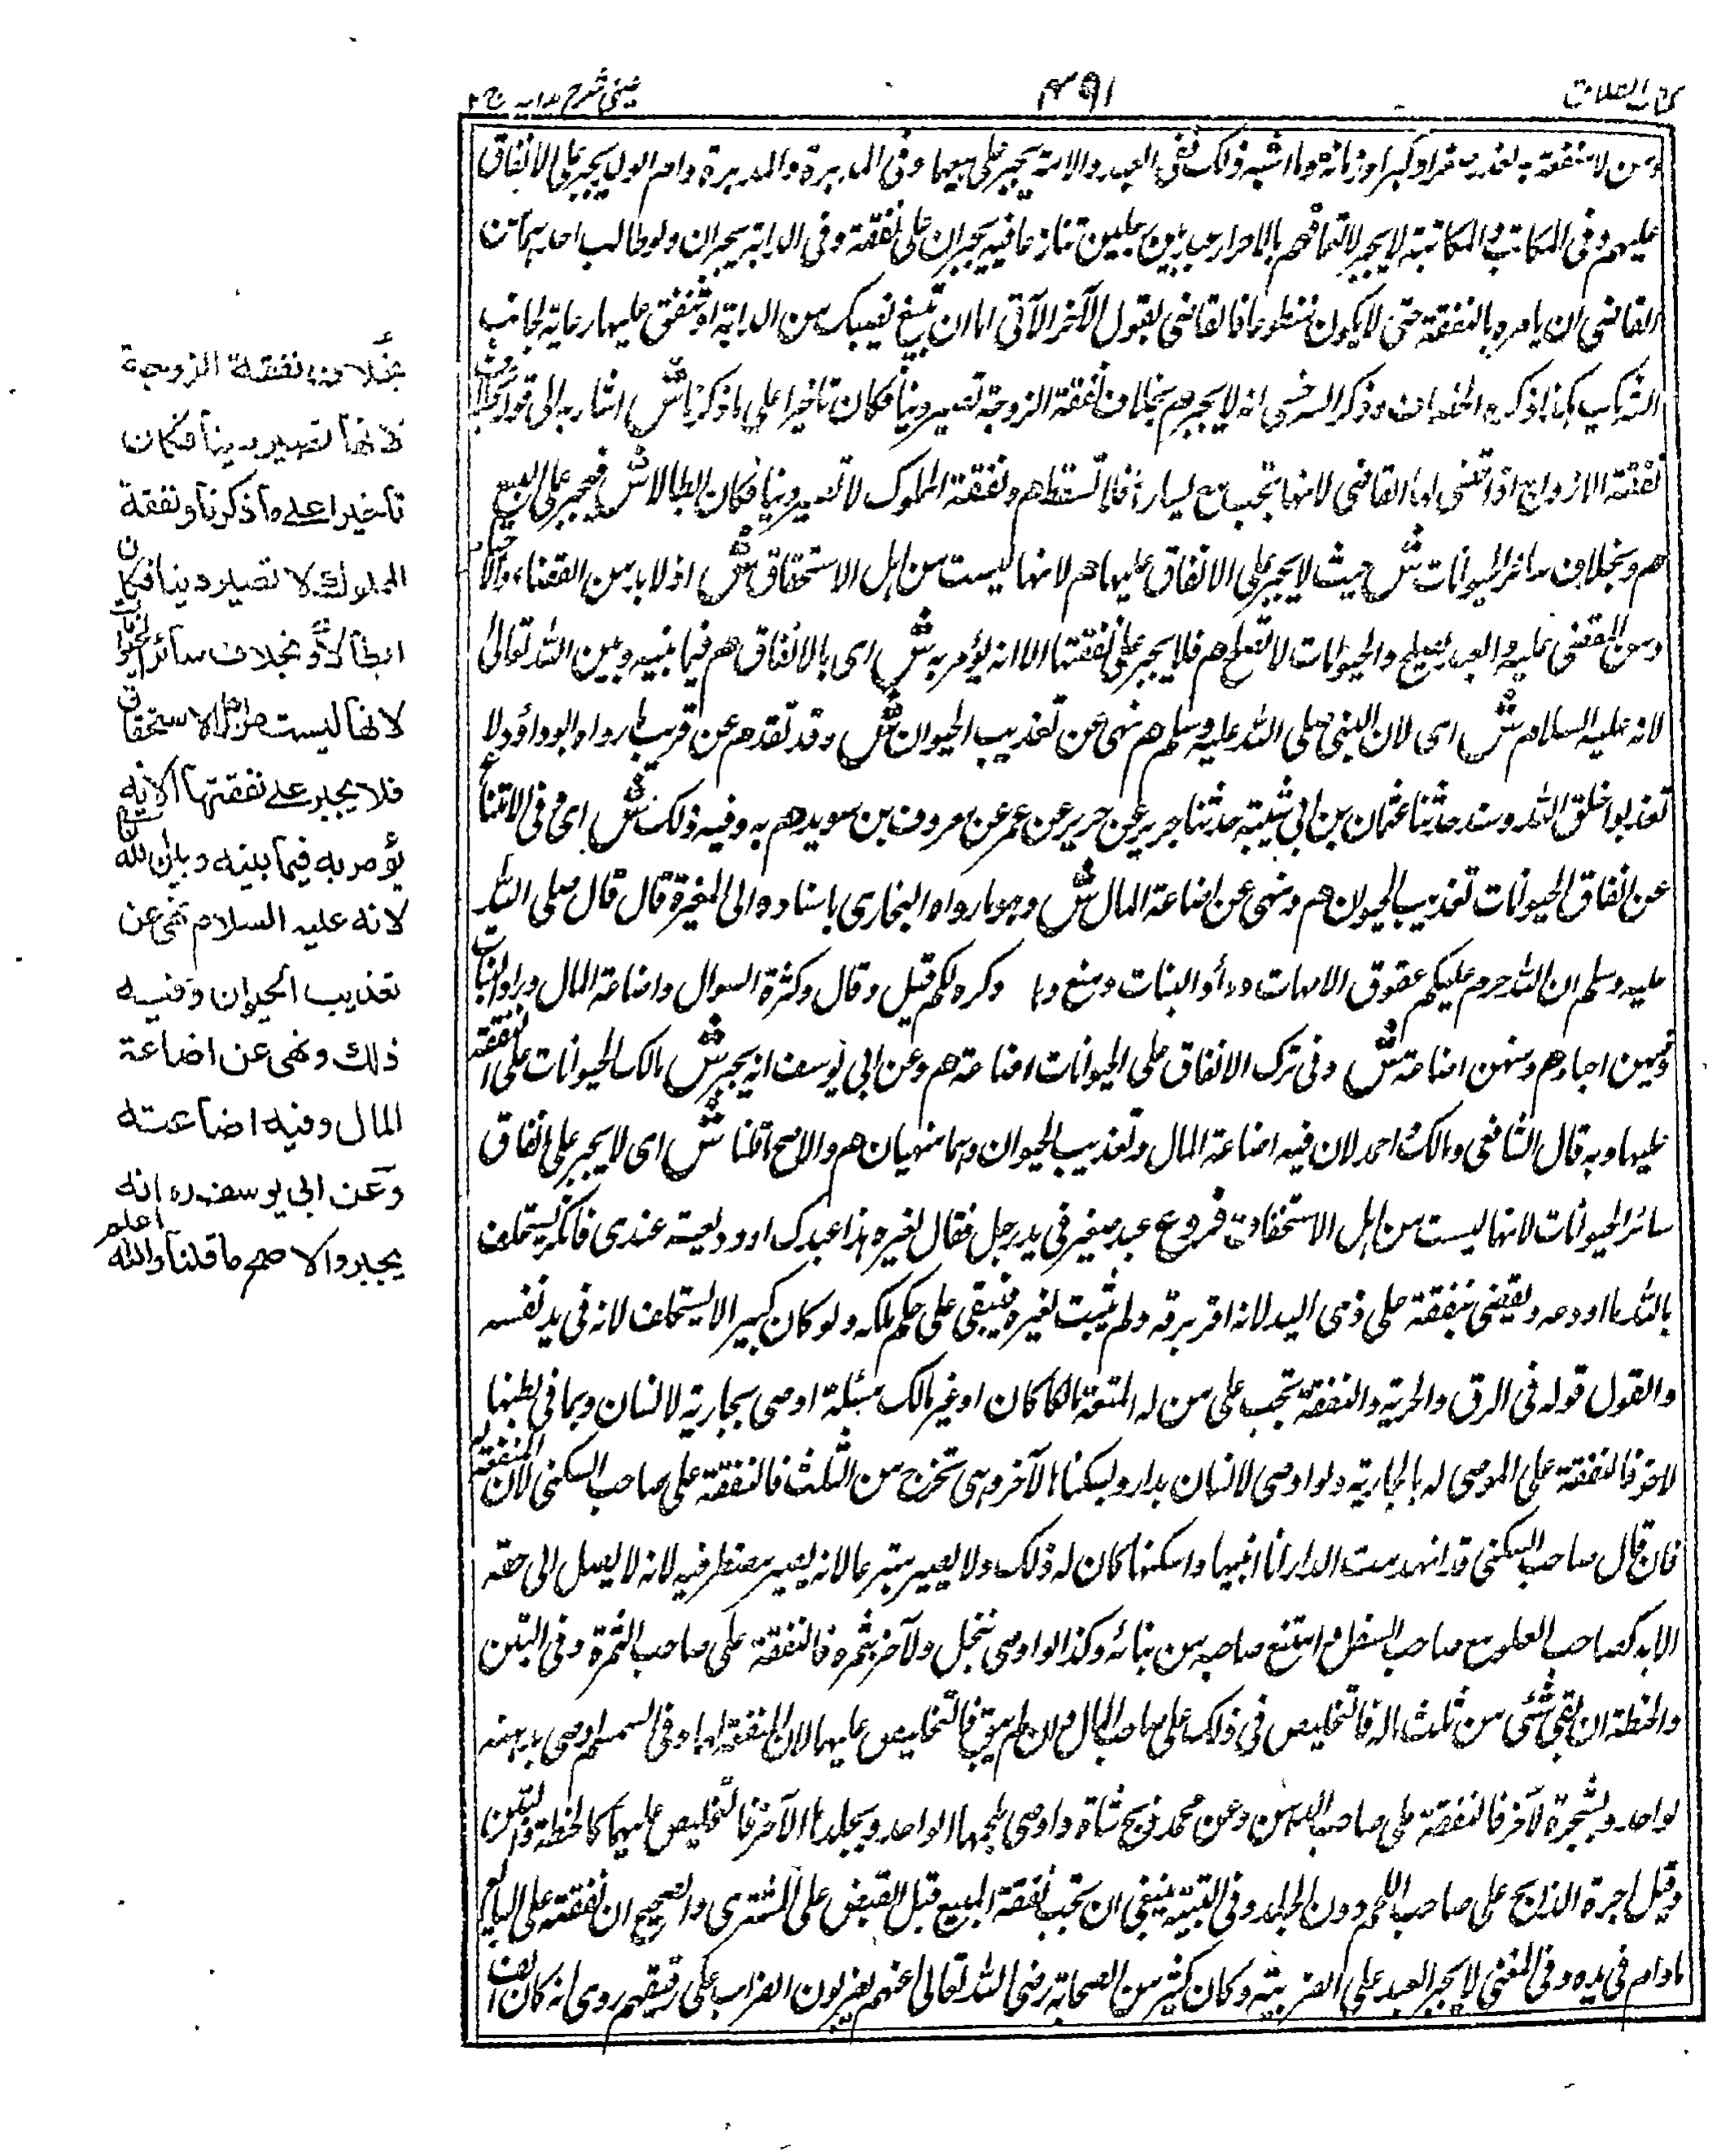 كتاب الطلاق
٣٩١
عينى شرح هدايه ج ٢
ومن لا منفعة به لعذر صغر او كبر او زمانة وما اشبه ذلك ففى العبد والامة يجبر على بيعهما وفى المدبرة والمدبرة وام الولد يجبر على الانفاق
عليهم وفى المكاتب والمكاتبة لا يجبر لالتحاقهم بالاحرار عبد بين رجلين تنازعا فيه يجبران على نفقته وفى الدابة يجبران ولو طالب احدهما من
القاضى ان يامره بالنفقة حتى لا يكون متطوعا فالقاضى يقول للآخر الآتى اما ان تبيع نصيبك من الدابة او تنفق عليها رعاية لجانب
الشريك هكذا ذكره الخصاف وذكر السرخسى انه لا يجبر هم بخلاف نفقة الزوجة تصير دينا فكان تاخيرا على ما ذكرنا ش اشار به الى قوله
نفقة الازواج اذا قضى لها القاضى لانها تجب مع يساره فلا تسقط هم ونفقة المملوك لا تصير دينا فكان ابطالا ش فيجبر على البيع
هم وبخلاف سائر الحيوانات ش حيث لا يجبر على الانفاق عليها هم لانها ليست من اهل الاستحقاق ش اذ لا بد من القضاء والا
ومن المقضى عليه والعبد يصلح والحيوانات لا تصلح هم فلا يجبر على نفقتها الا انه يؤمر به ش اى بالانفاق هم فيما بينه وبين الله تعالى
لانه عليه السلام ش اى لان النبى صلى الله عليه وسلم هم نهى عن تعذيب الحيوان ش وقد تقدم عن قريب ما رواه ابو داؤد لا
تعذبوا خلق الله وسنده حدثنا عثمان بن ابى شيبة حدثنا جرير عن جرير عن عمر عن معروف بن سويد هم به وفيه ذلك ش اى وفى الامتناع
عن انفاق الحيوانات تعذيب الحيوان هم ونهى عن اضاعة المال ش وهو ما رواه البخارى باسناده الى المغيرة قال قال صلى الله
عليه وسلم ان الله حرم عليكم عقوق الامهات ووأد البنات ومنع وها وكره لكم قيل وقال وكثرة السوال واضاعة المال
هم وفيه اضاعته ش وفى ترك الانفاق على الحيوانات اضاعة هم وعن ابى يوسف انه يجبر ش مالك الحيوانات على النفقة
عليها وبه قال الشافعى ومالك واحمد لان فيه اضاعة المال وتعذيب الحيوان وهما منهيان هم والاصح ما قلنا ش اى لا يجبر على انفاق
سائر الحيوانات لانها ليست من اهل الاستحقاق فروع عبد صغير فى يد رجل فقال لغيره هذا عبدك او وديعة عندى فانكر يستحلف
بالله ما اودعه ويقضى بنفقته على ذى اليد لانه اقر برقه ولم يثبت لغيره فيبقى على حكم ملكه ولو كان كبيرا لا يستحلف لانه فى يد نفسه
والقول قوله فى الرق والحرية والنفقة تجب على من له المتعة مالكا كان او غير مالك مسئلة اوصى بجارية لانسان وبما فى بطنها
لآخر فالنفقة على الموصى له بالجارية ولو اوصى لانسان بدار وبسكناها لآخر وهى تخرج من الثلث فالنفقة على صاحب السكنى لان المنفعة له
فان قال صاحب السكنى قد انهدمت الدار انا ابنيها واسكنها كان له ذلك ولا يصير متبرعا لانه يصير مضطر فيه لانه لا يصل الى حقه
الا به كصاحب العلو مع صاحب السفل اذا امتنع صاحبه من بنائه وكذا لو اوصى بنخل ولآخر بثمره فالنفقة على صاحب الثمرة وفى التبن
والحنطة ان بقى شئى من ثلث ماله فالتخليص فى ذلك على صاحب المال وان لم يبق فالتخليص عليهما لان المنفعة لهما وفى السمسم اوصى بدهنه
لواحد وبشجرة لآخر فالنفقة على صاحب الدهن وعن محمد ذبح شاة واوصى بلحمها لواحد وبجلدها لآخر فالتخليص عليهما كالحنطة والتبن
وقيل اجرة الذابح على صاحب اللحم دون الجلد وفى القنية ينبغى ان تجب نفقة المبيع قبل القبض على المشترى والصحيح ان نفقته على البايع
ما دام فى يده وفى المغنى لا يجبر العبد على الضريبة وكان كثير من الصحابة رضى الله تعالى عنهم يضربون الضراب على رقيقهم روى انه كان
بخلاف نفقة الزوجة
لانها تصير دينا فكان
تأخيرا على ما ذكرنا ونفقة
المملوك لا تصير دينا فكان
ابطالا وبخلاف سائر الحيوانات
لانها ليست من اهل الاستحقاق
فلا يجبر على نفقتها الا انه
يؤمر به فيما بينه وبين الله
لانه عليه السلام نهى عن
تعذيب الحيوان وفيه
ذلك ونهى عن اضاعة
المال وفيه اضاعته
وعن ابى يوسف ره انه
يجبر والاصح ما قلنا والله اعلم